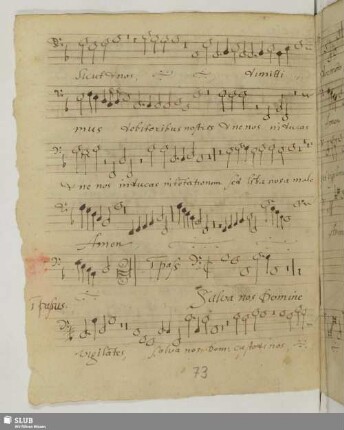 Sicut & nos, dimitti
mus debitoribus nostris & ne nos inducas
& ne nos inducas in tentationem, sed libera nos a malo
Amen
1 pars
Salva nos Domine
vigilates, salva nos Dom. custodi nos,
73
SLUB
Wir führen Wissen.